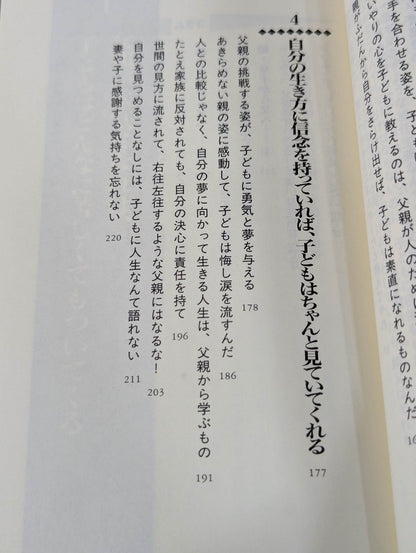 手を合わせる姿を、
いやりの心を子どもに教えるのは、父親が人のた
親がふだんから自分をさらけ出せば、子どもは素直になれるものなんだ
4
自分の生き方に信念を持っていれば、子どもはちゃんと見ていてくれる
177
父親の挑戦する姿が、子どもに勇気と夢を与える
178
あきらめない親の姿に感動して、子どもは悔し涙を流すんだ
186
人との比較じゃなく、自分の夢に向かって生きる人生は、父親から学ぶもの
191
たとえ家族に反対されても、自分の決心に責任を持て
196
世間の見方に流されて、右往左往するような父親にはなるな!
203
自分を見つめることなしには、子どもに人生なんて語れない
211
妻や子に感謝する気持ちを忘れない
220